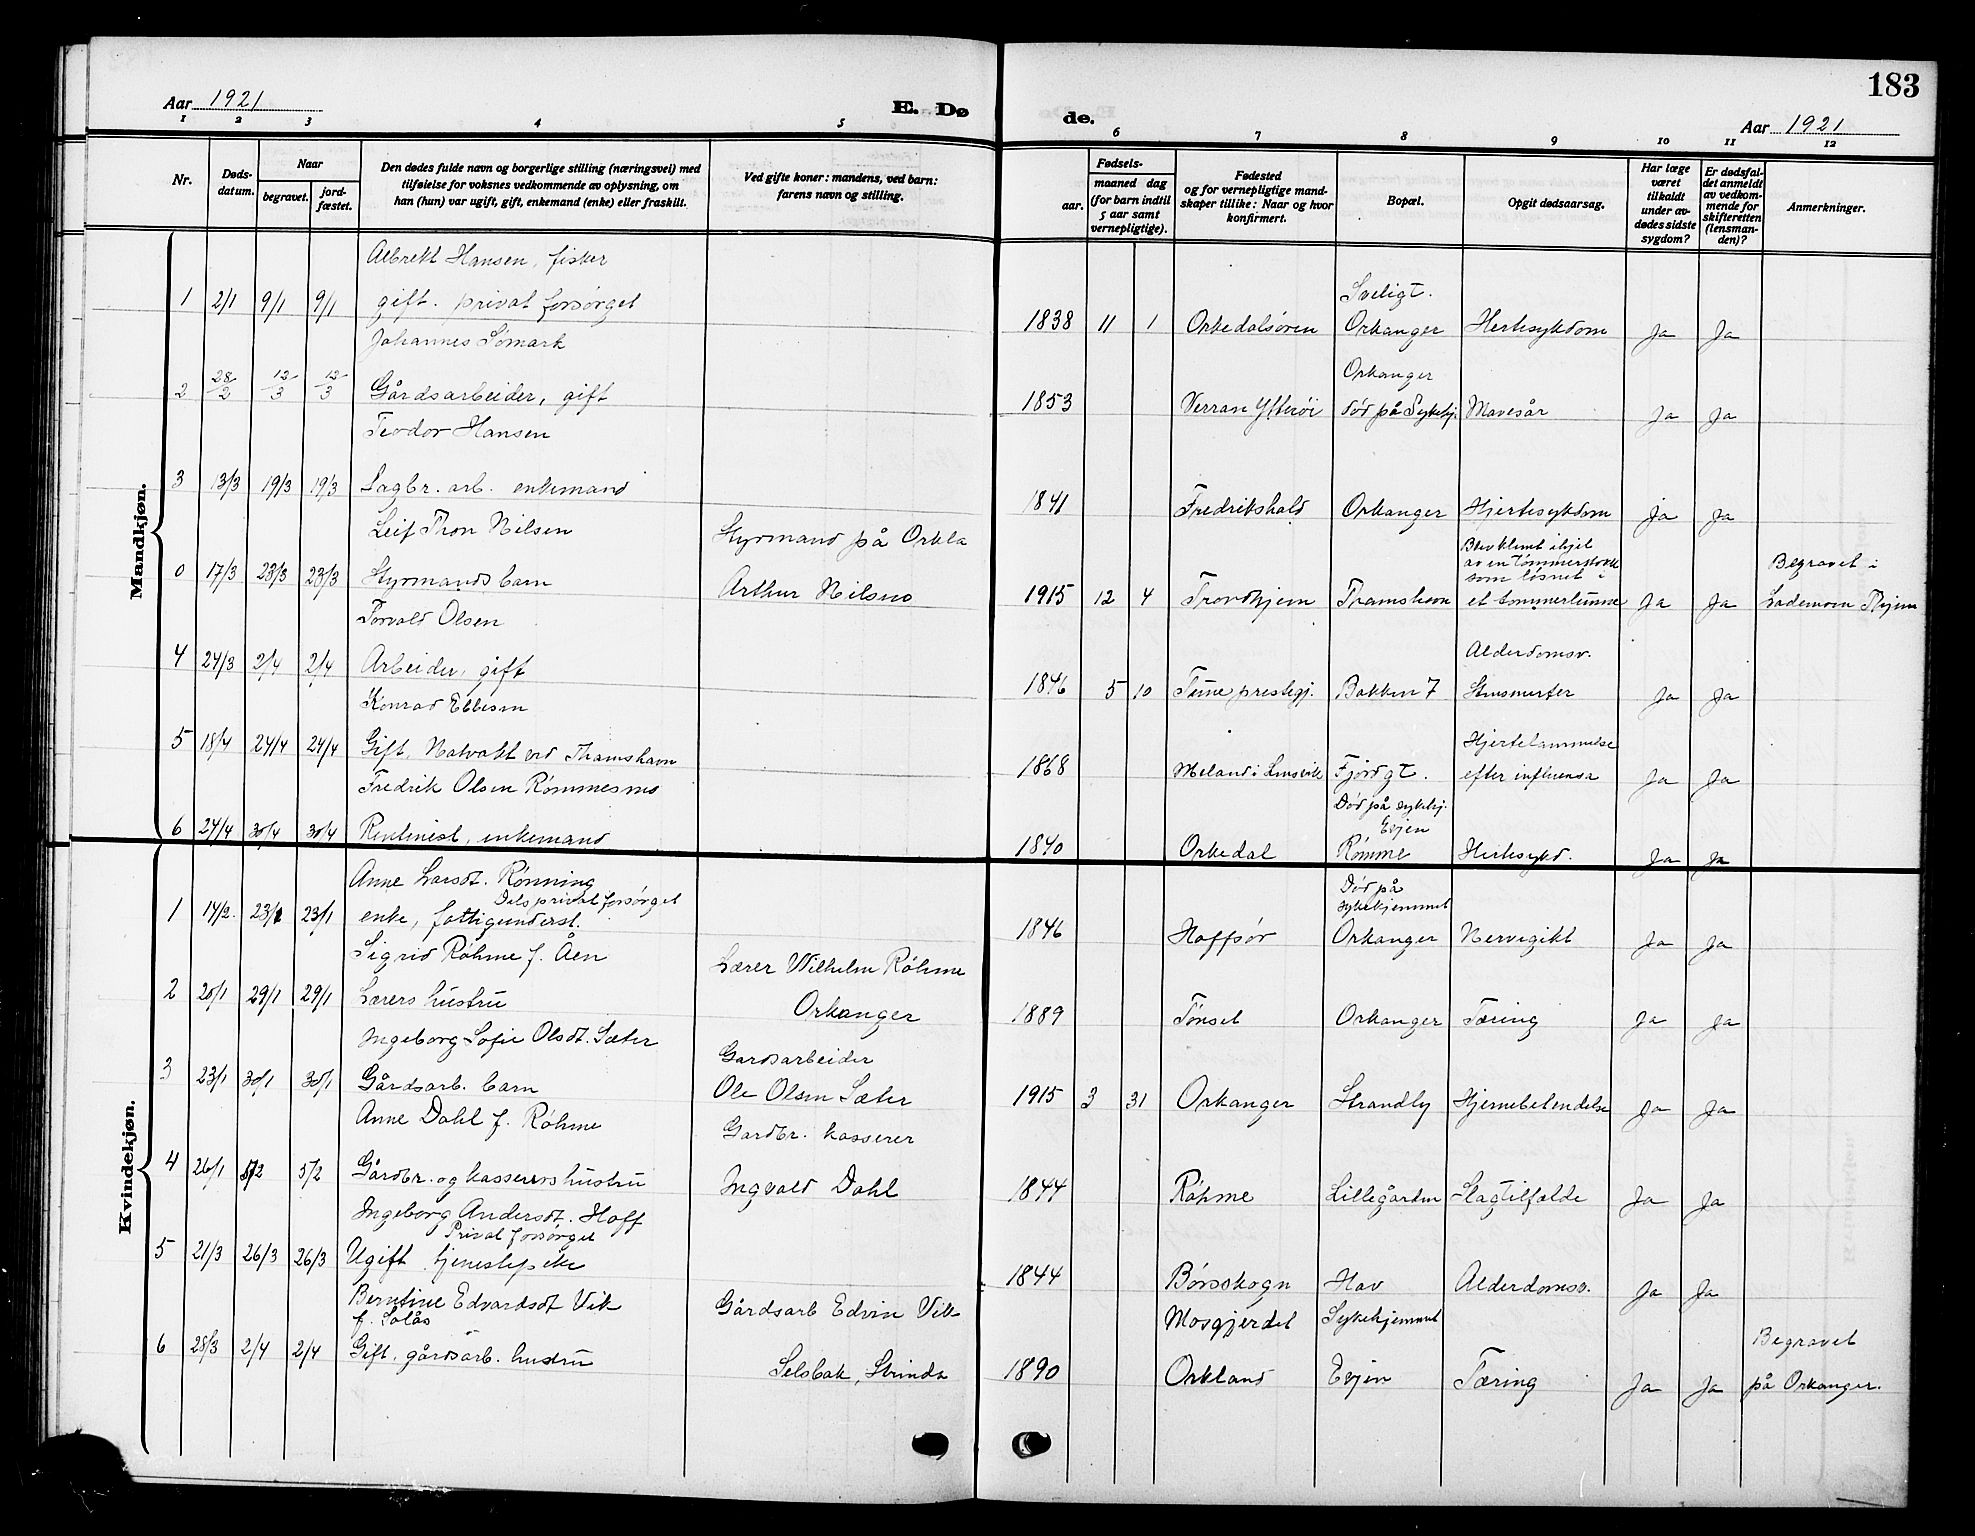 183
Aar 1921
E. Dø
de.
Aar 1921
1 2 3 4 5 6 7 8 9 10 11 12
Nr.
Døds-
datum.
Naar
begravet.
jord-
fæstet.
Den dødes fulde navn og borgerlige stilling (næringsvei) med
tilføielse for voksnes vedkommende av oplysning, om
han (hun) var ugift, gift, enkemand (enke) eller fraskilt.
Ved gifte koner: mandens, ved barn:
farens navn og stilling.
Fødsels-
aar.
maaned dag
(for barn indtil
5 aar samt
vernepligtige).
Fødested
og for vernepligtige mand-
skaper tillike: Naar og hvor
konfirmert.
Bopæl.
Opgit dødsaarsag.
Har læge
været
tilkaldt
under av-
dødes sidste
sygdom?
Er dødsfal-
det anmeldt
av vedkom-
mende for
skifteretten
(lensman-
den)?
Anmerkninger.
Mandkjøn.
Albrekt Hansen, fisker
Sveligt.
1 2/1 9/1 9/1 gift. privat forsørget 1838 11 1 Orkedalsøren Orkanger Hertesykdom Ja Ja
Johannes Sømark
Orkanger
2 28/2 12/3 12/3 Gårdsarbeider, gift 1853 Verran Ytterøi død på Sykehj. Mavesår Ja Ja
Teodor Hansen
3 13/3 19/3 19/3 Sagbr. arb. enkemand 1841 Fredrikshald Orkanger Hjertesykdom Ja Ja
Leif Tron Nilsen Styrmand på Orkla
Blev klemt ihjel
av en tømmerstokk
som løsnet i
Begravet i
0 17/3 23/3 23/3 Styrmands barn Arthur Nilsen 1915 12 4 Trondhjem Thamshavn et tømmerlunne Ja Ja Lademoen Thjem
Torvald Olsen
Alderdomsv.
4 24/3 2/4 2/4 Arbeider, gift 1846 5 10 Tune prestegj. Bakken 7 Ja Ja
Konrad Ellesen
Hjertelammelse
5 18/4 24/4 24/4 Gift. Natvakt ved Thamshavn 1868 Meland i Lensvik Fjordgt. efter influensa Ja Ja
Fredrik Olsen Rømmesmo
Død på sykehj.
Evjen
6 24/4 30/4 30/4 Rentenist, enkemand 1840 Orkedal Rømme Hertesykd. Ja Ja
Kvindekjøn.
Anne Larsdt. Rønning
Dels privat forsørget
Død på
sykehjemmet
1 14/2. 23/1 23/1 enke, fattigunderst. 1846 Haffsør Orkanger Nervegikt Ja Ja
Sigrid Røhme f. Åen Lærer Wilhelm Røhme
2 20/1 29/1 29/1 Lærers hustru Orkanger 1889 Tønset Orkanger Tæring Ja Ja
Ingeborg Sofie Olsdt. Sæter Gardsarbeider
3 23/1 30/1 30/1 Gårdsarb. barn Ole Olsen Sæter 1915 3 31 Orkanger Strandly Hjernebetendelse Ja Ja
Anne Dahl f. Røhme Gardbr. kasserer
4 26/1 5/2 5/2 Gårdbr. og kasserers hustru Ingvald Dahl 1844 Røhme Lillegården Slagtilfælde Ja Ja
Ingeborg Andersdt. Hoff
Privat forsørget
5 21/3 26/3 26/3 Ugift tjenestepike 1844 Børsskogn Hav Alderdomsv. Ja Ja
Berntine Edvardsdt Vik
f. Solås
Gårdsarb Edvin Vik
Mosgjerdet Sykehjemmet
Begravet
6 28/3 2/4 2/4 Gift, gårdsarb. hustru Selsbak, Strinda 1890 Orkland Evjen Tæring Ja Ja på Orkanger.